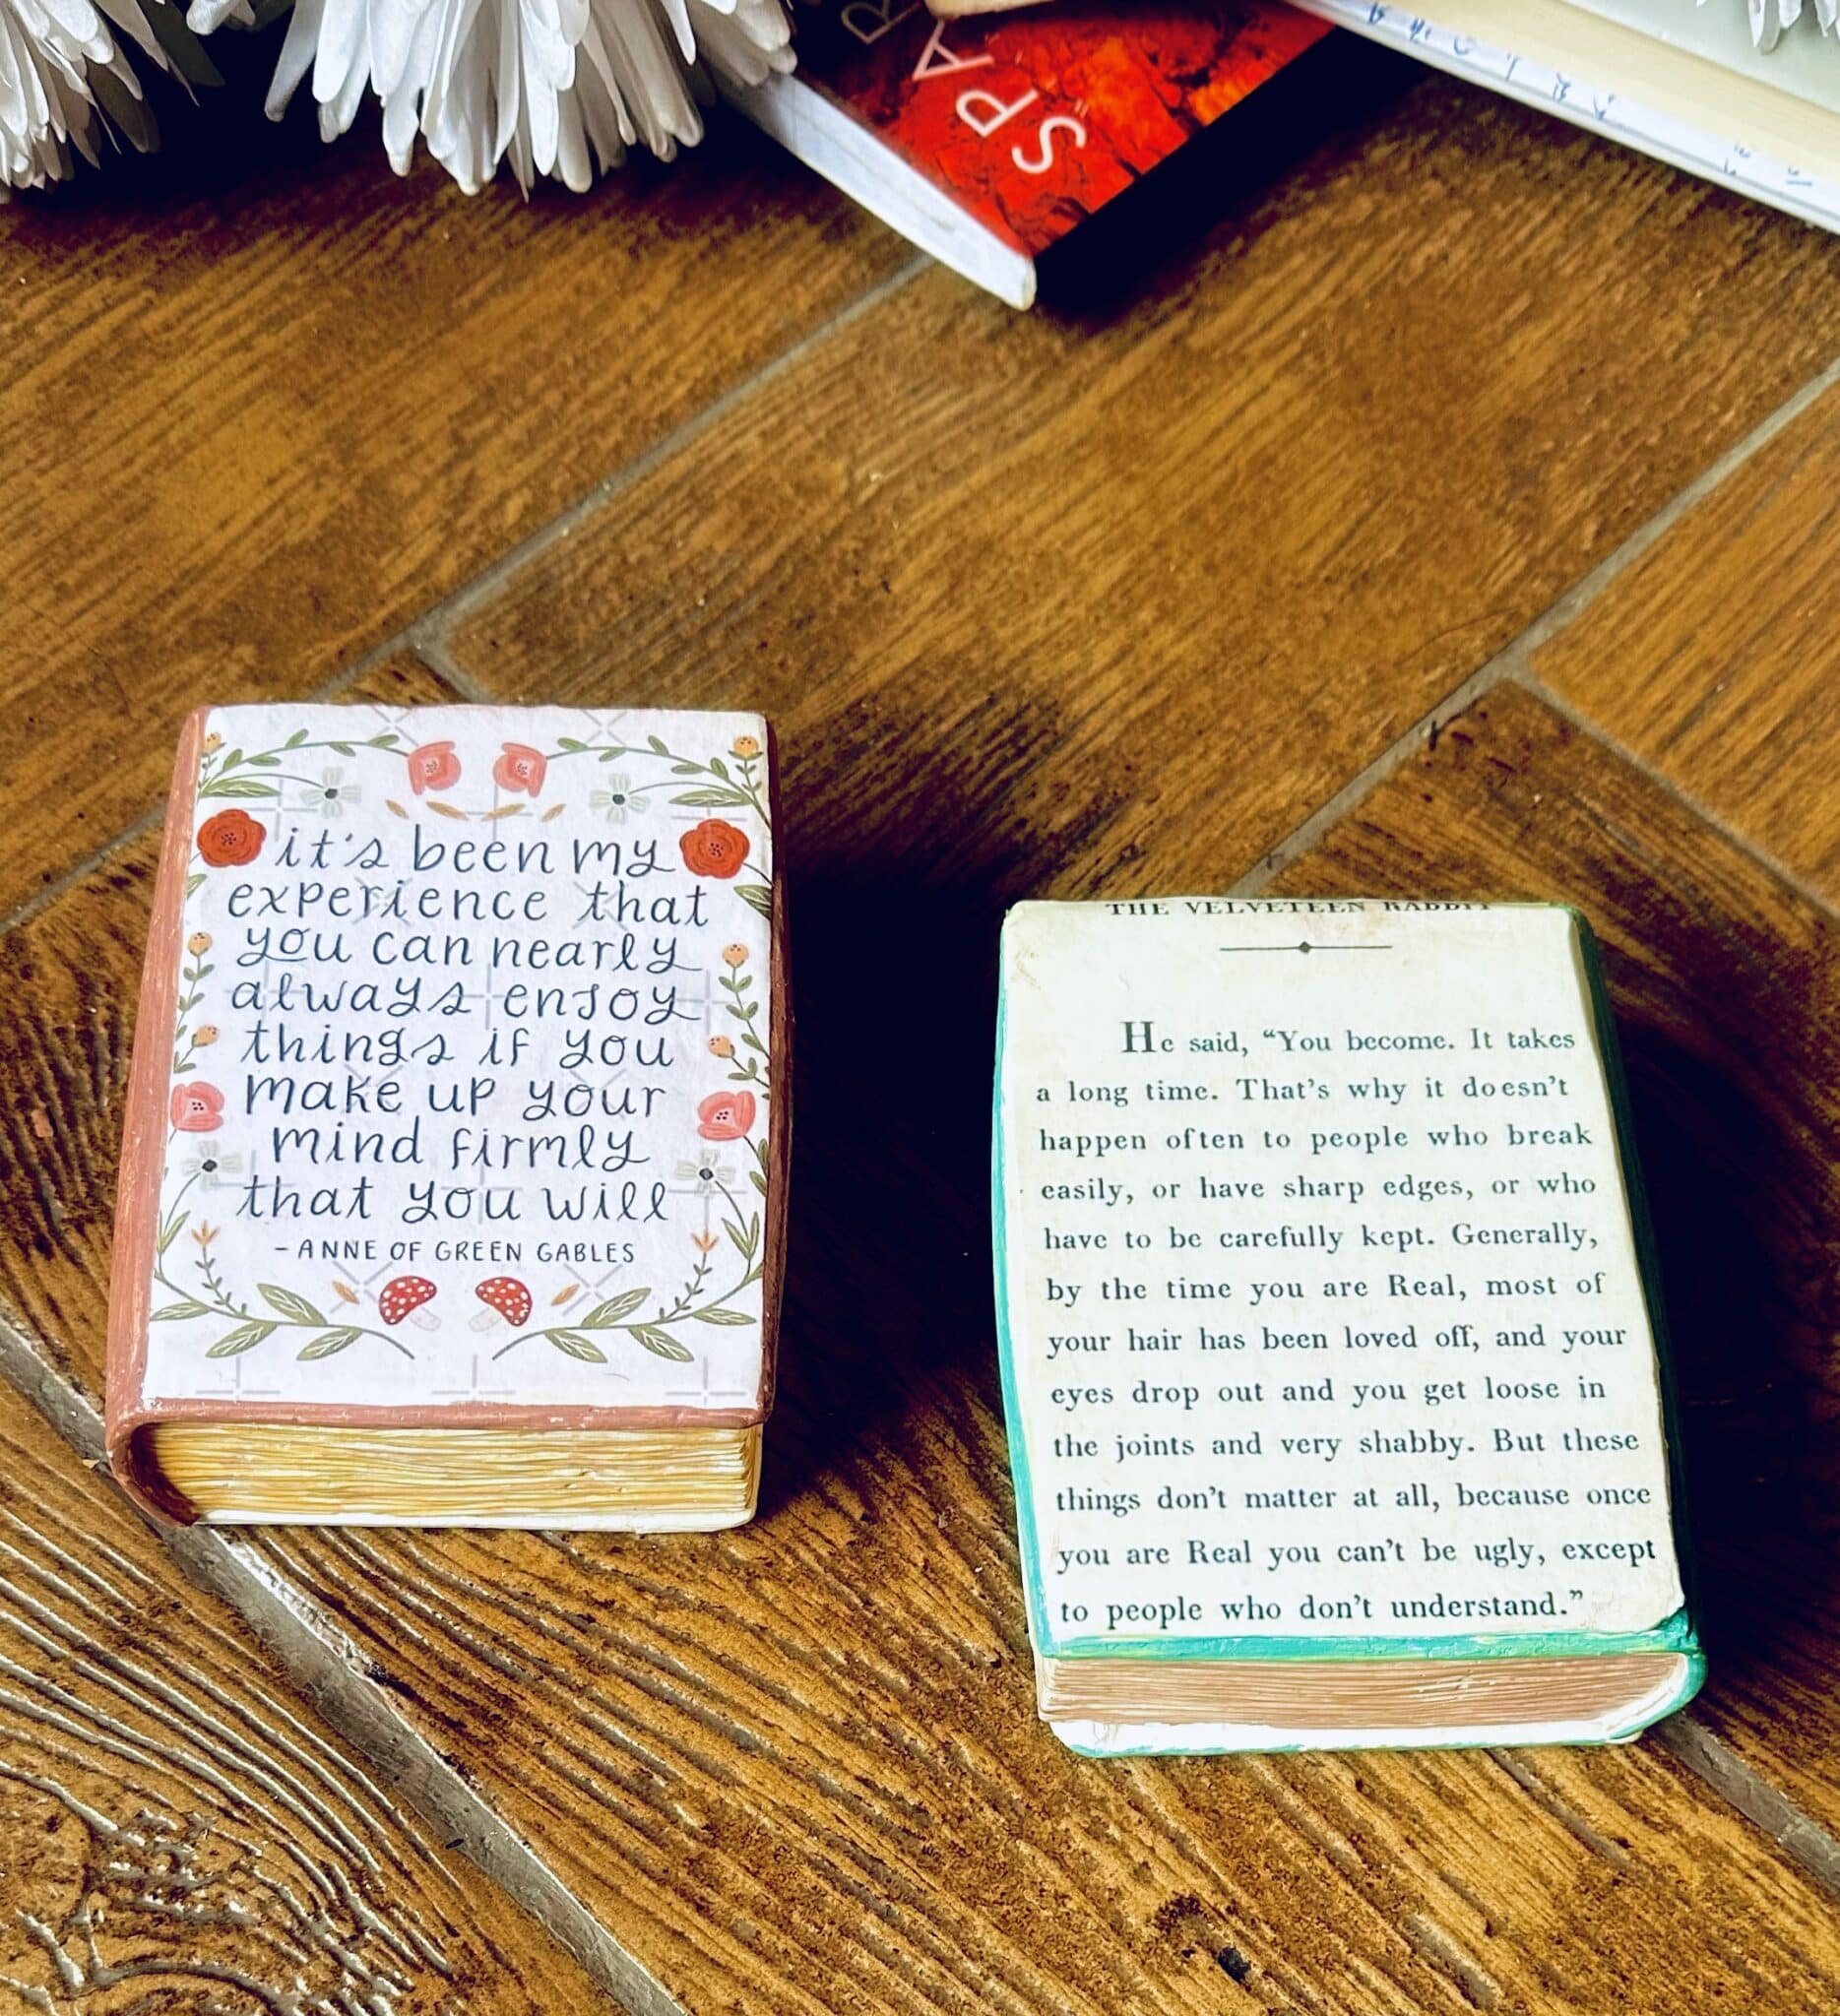 SPAR
it's been my
experience that
you can nearly
always enjoy
things if you
make up your
mind firmly
that you will
- ANNE OF GREEN GABLES
THE VELVETEEN RABBIT
He said, “You become. It takes
a long time. That's why it doesn't
happen often to people who break
easily, or have sharp edges, or who
have to be carefully kept. Generally,
by the time you are Real, most of
your hair has been loved off, and your
eyes drop out and you get loose in
the joints and very shabby. But these
things don't matter at all, because once
you are Real you can't be ugly, except
to people who don't understand.”